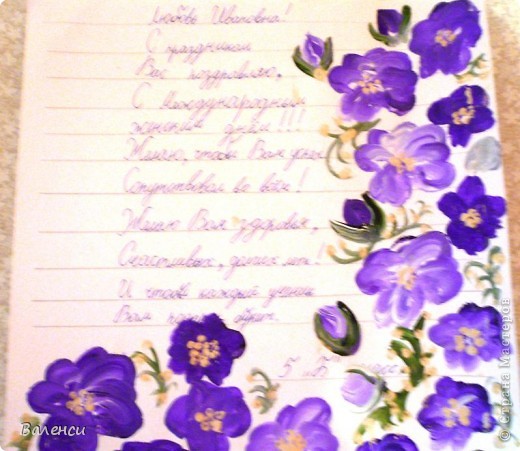 Любовь Ивановна!
С праздником
Вас поздравляю,
С Международным
женским днём!!!
Желаю, чтобы Вам успех
Сопутствовал во всём!
Желаю Вам здоровья,
Счастливых, долгих лет!
И чтобы каждый ученик
Вам
5 "Б" класс
Валенси
© Страна Мастеров